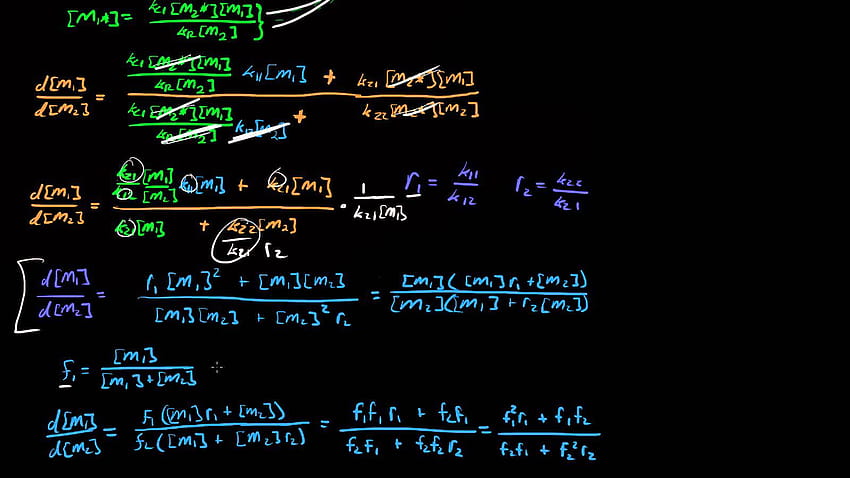 [M₁*] = k₂₁[M₂*][M₁] / k₁₂[M₂] }
d[M₁]/d[M₂] = ( k₂₁[M₂*][M₁]/k₁₂[M₂] k₁₁[M₁] + k₂₁[M₂*][M₁] ) / ( k₂₁[M₂*][M₁]/k₁₂[M₂] k₁₂[M₂] + k₂₂[M₂*][M₂] )
d[M₁]/d[M₂] = ( k₂₁[M₁]/k₁₂[M₂] k₁₁[M₁] + k₂₁[M₁] ) / ( k₂₁[M₁] + k₂₂[M₂] ) · 1/k₂₁[M₁] r₁ = k₁₁/k₁₂ r₂ = k₂₂/k₂₁
k₂₁ r₂
[ d[M₁]/d[M₂] = ( r₁[M₁]² + [M₁][M₂] ) / ( [M₁][M₂] + [M₂]² r₂ ) = [M₁]([M₁]r₁ + [M₂]) / [M₂]([M₁] + r₂[M₂])
f₁ = [M₁] / [M₁]+[M₂]
d[M₁]/d[M₂] = f₁([M₁]r₁ + [M₂]) / f₂([M₁] + [M₂]r₂) = ( f₁f₁r₁ + f₂f₁ ) / ( f₂f₁ + f₂f₂r₂ ) = ( f₁²r₁ + f₁f₂ ) / ( f₂f₁ + f₂²r₂ )